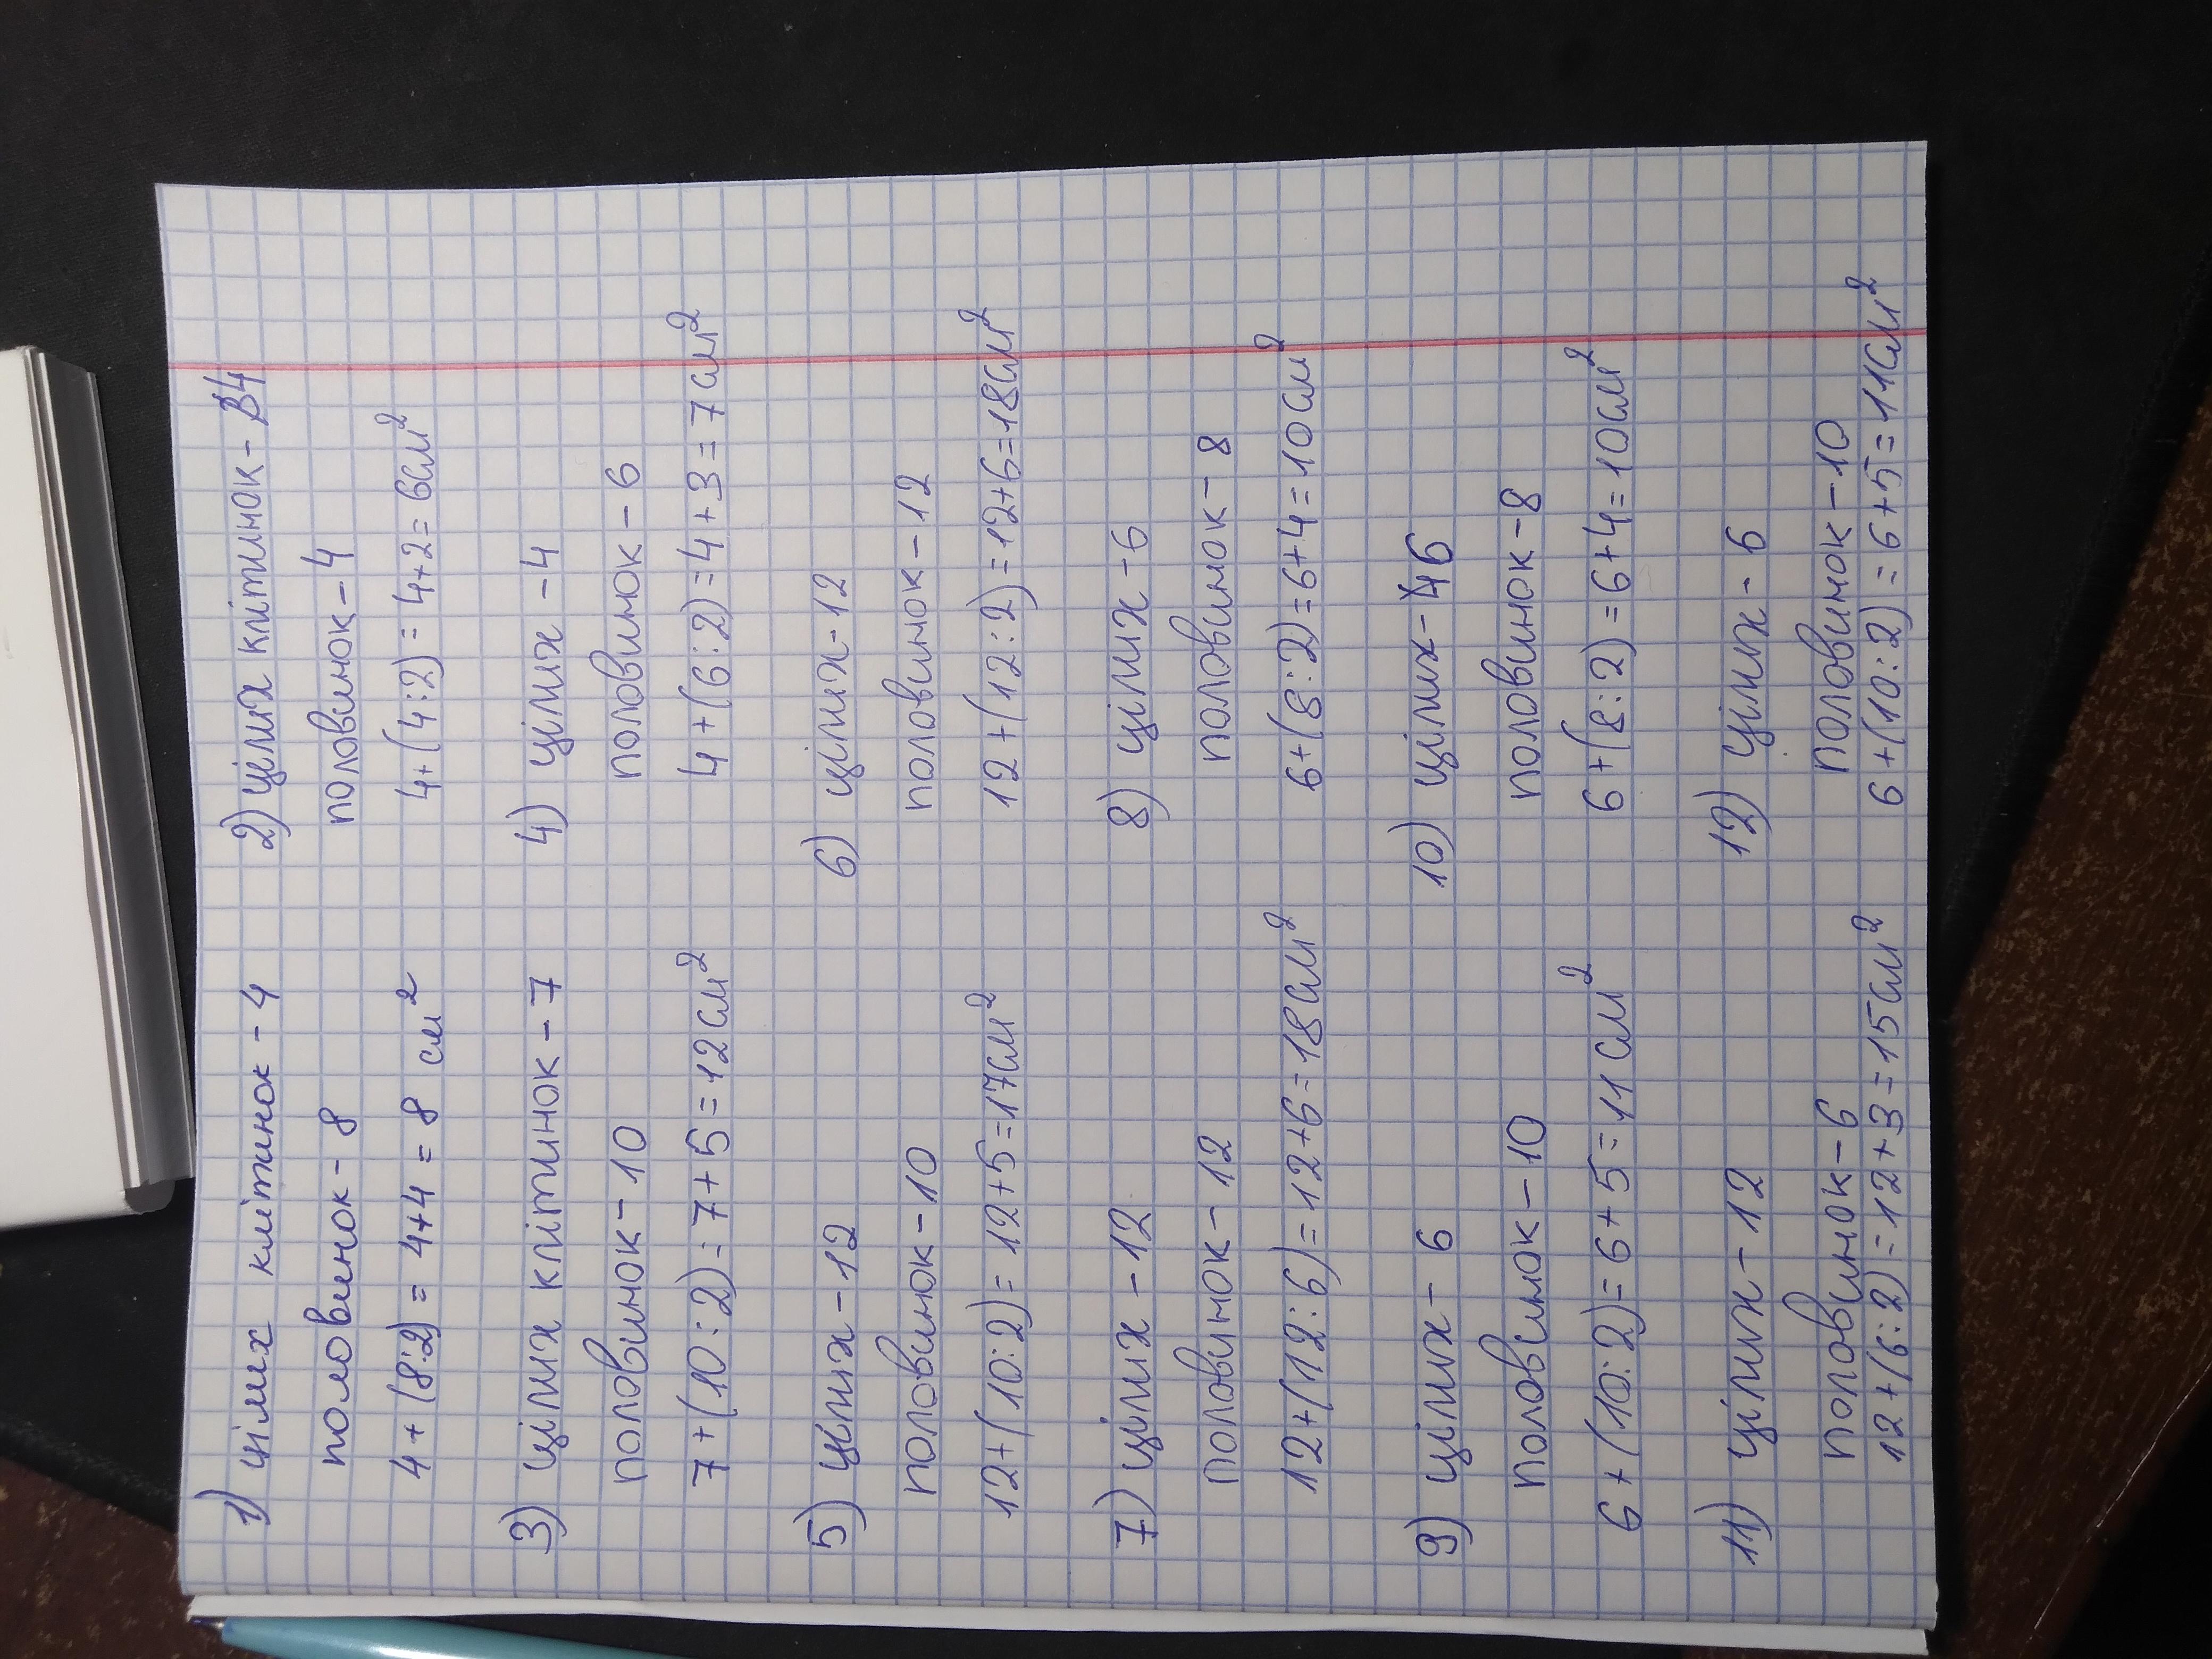 1) цілих клітинок - 4
половинок - 8
4 + (8:2) = 4+4 = 8 см²
2) цілих клітинок - 4
половинок - 4
4+(4:2) = 4+2 = 6см²
3) цілих клітинок - 7
половинок - 10
7+(10:2) = 7+5 = 12см²
4) цілих - 4
половинок - 6
4+(6:2) = 4+3 = 7см²
5) цілих - 12
половинок - 10
12+(10:2) = 12+5 = 17см²
6) цілих - 12
половинок - 12
12+(12:2) = 12+6 = 18см²
7) цілих - 12
половинок - 12
12+(12:6) = 12+6 = 18см²
8) цілих - 6
половинок - 8
6+(8:2) = 6+4 = 10см²
9) цілих - 6
половинок - 10
6+(10:2) = 6+5 = 11см²
10) цілих - 6
половинок - 8
6+(8:2) = 6+4 = 10см²
11) цілих - 12
половинок - 6
12+(6:2) = 12+3 = 15см²
12) цілих - 6
половинок - 10
6+(10:2) = 6+5 = 11см²